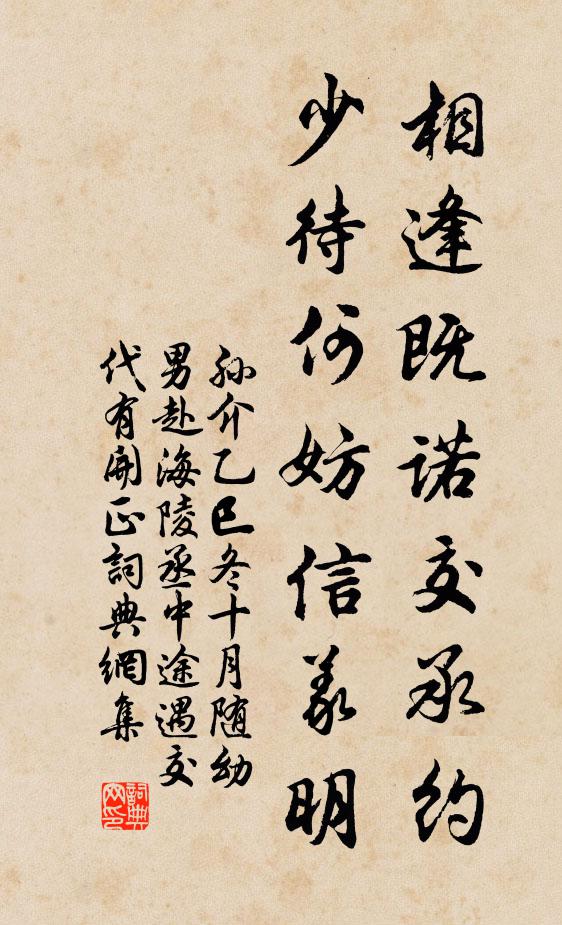 相逢既诺交承约
少待何妨信义明
孙介乙巳冬十月随幼
男赴海陵丞中途遇交
代有开正詞典網集
詞典
网印